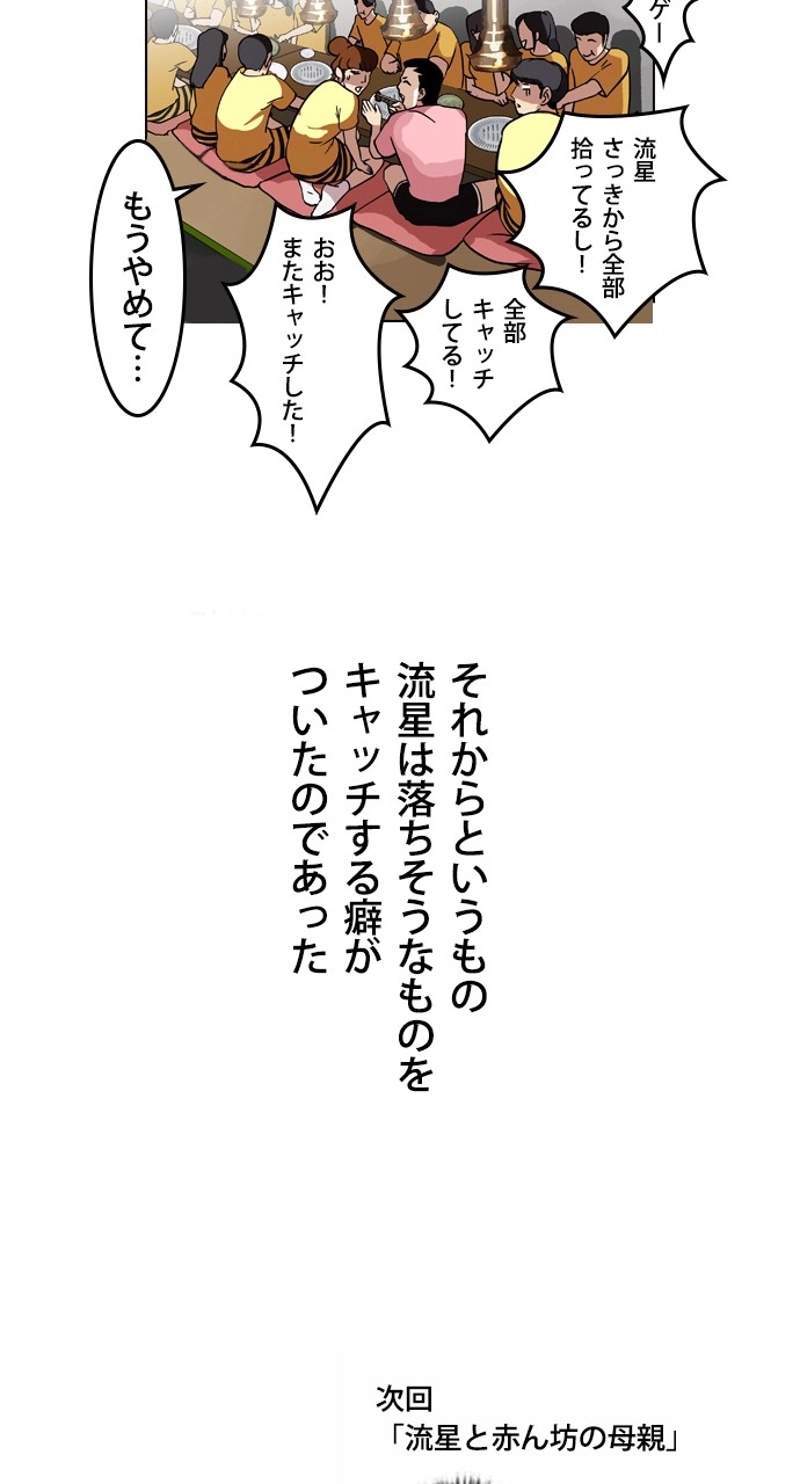 ゲー
流星
さっきから全部
拾ってるし！
全部
キャッチ
してる！
おお！
またキャッチした！
もうやめて…
それからというもの
流星は落ちそうなものを
キャッチする癖が
ついたのであった
次回
「流星と赤ん坊の母親」